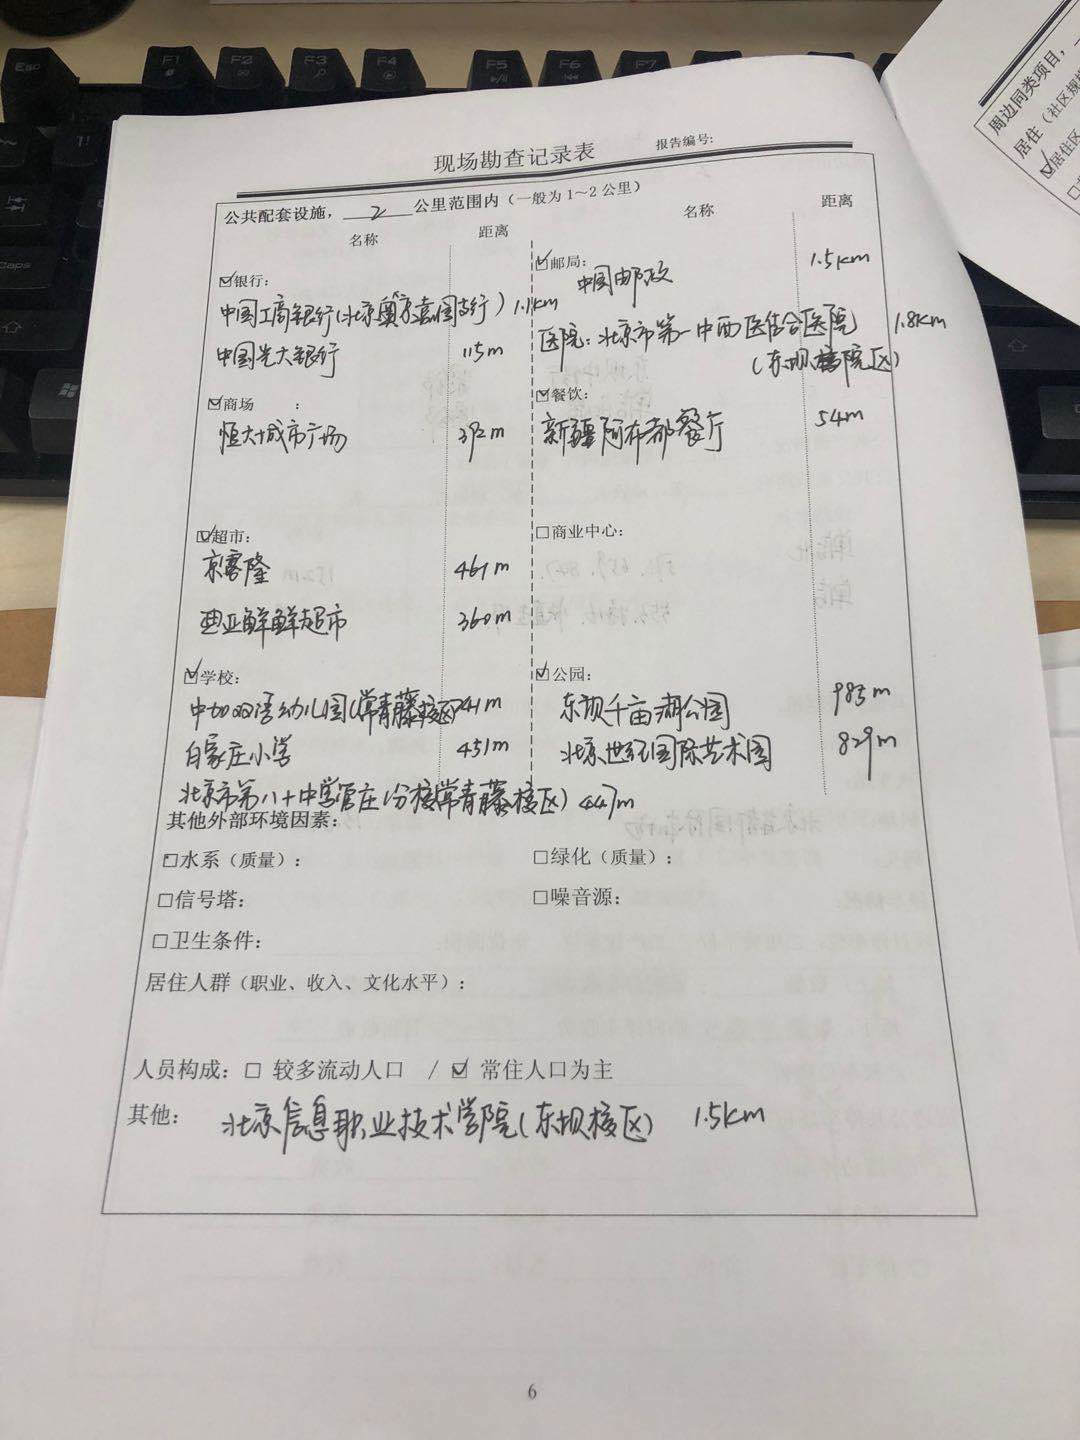 现场勘查记录表
报告编号:
公共配套设施，2公里范围内（一般为1~2公里）
名称 距离 名称 距离
☑银行:
中国工商银行(北京 支行) 1.1km
中国光大银行 115m
☑邮局:
中国邮政 1.5km
医院: 北京市第一中西医结合医院 1.8km
(东坝院区)
☑商场 :
恒大城市广场 392m
☑餐饮:
新疆阿布都餐厅 54m
☑超市:
京客隆 461m
迪亚鲜鲜超市 360m
□商业中心:
☑学校:
中加双语幼儿园(常青藤校区) 241m
白家庄小学 451m
北京市第八十中学管庄分校(常青藤校区) 447m
☑公园:
东坝千亩湖公园 985m
北京世纪国际艺术园 829m
其他外部环境因素:
□水系（质量）:
□绿化（质量）:
□信号塔:
□噪音源:
□卫生条件:
居住人群（职业、收入、文化水平）:
人员构成: □ 较多流动人口 / ☑ 常住人口为主
其他: 北京信息职业技术学院(东坝校区) 1.5km
6
周边同类项目，
居住（社区规
☑居住区
Esc
F1
F2
F3
F4
F5
F6
F7
Caps